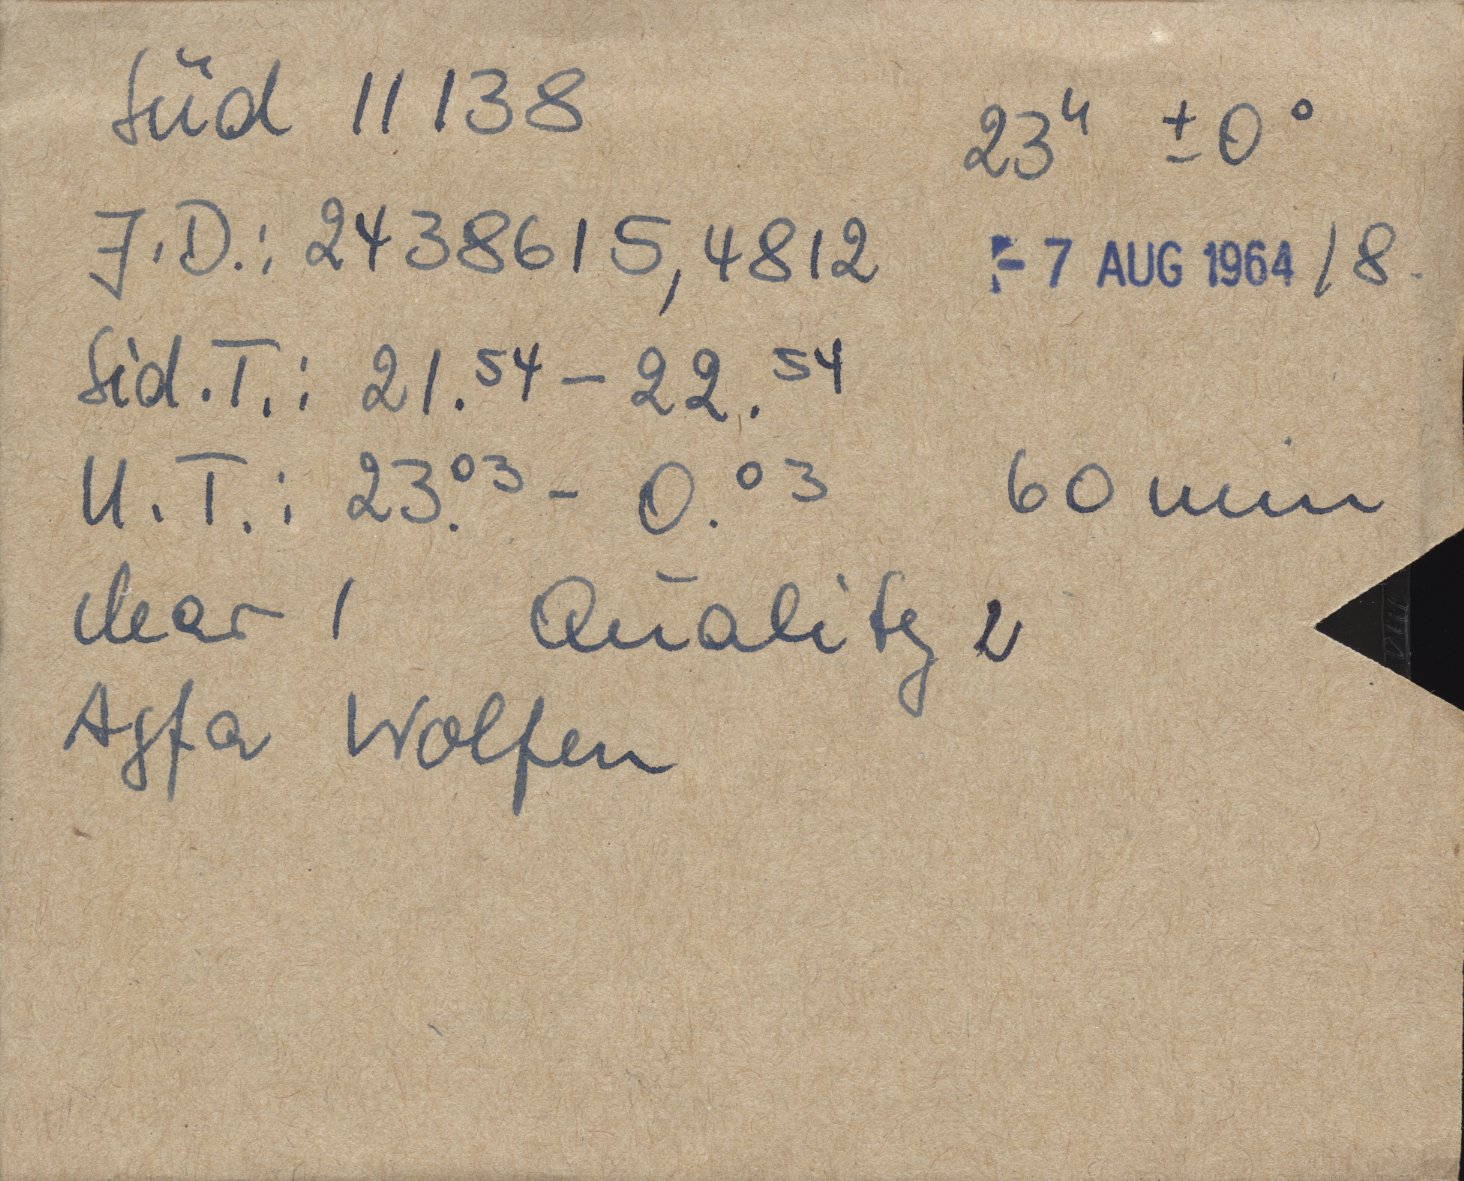 Süd 11138 23ʰ ±0°
J.D.: 2438615,4812 - 7 AUG 1964 /8.
Sid.T.: 21.⁵⁴ – 22.⁵⁴
U.T.: 23.⁰³ - 0.⁰³ 60 min
clear 1 Quality 2
Agfa Wolfen